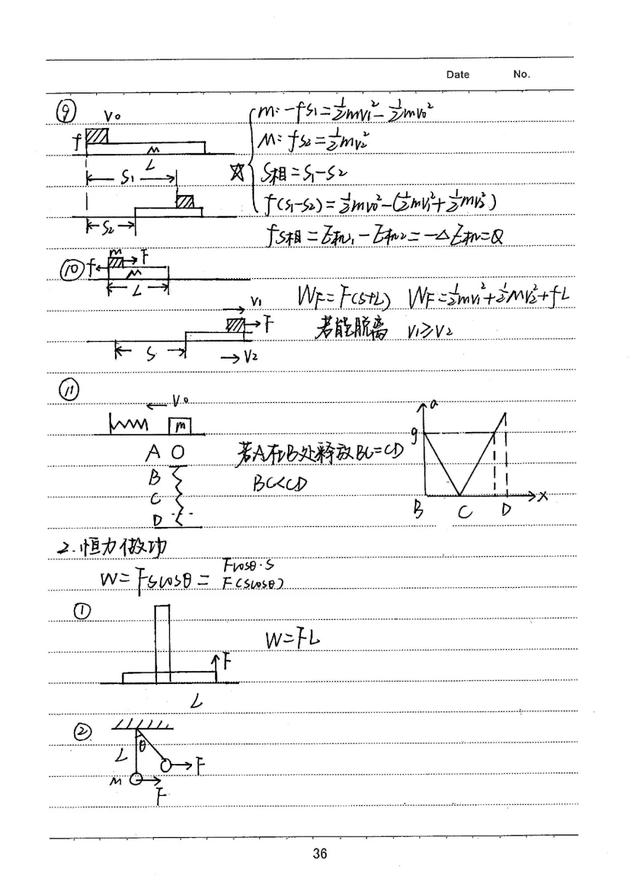 Date No.
⑨ V₀ m: -fS₁=½mv₁²-½mv₀²
f M M: fS₂=½mv₂²
L
S₁ ☆ S相=S₁-S₂
f(S₁-S₂)=½mv₀²-(½mv₁²+½mv₂²)
S₂
fS相=E机₁-E机₂=-△E机=Q
⑩ f m F
M
L V₁ WF=F(S+L) WF=½mv₁²+½Mv₂²+fL
F 若能脱离 V₁≥V₂
S V₂
⑪
V₀ a
m
A O 若A在B处释放BC=CD g
B
C BC<CD
D B C D x
2.恒力做功
W=FScosθ= Fcosθ·S
F(Scosθ)
①
W=FL
F
L
②
L θ
F
M
F
36